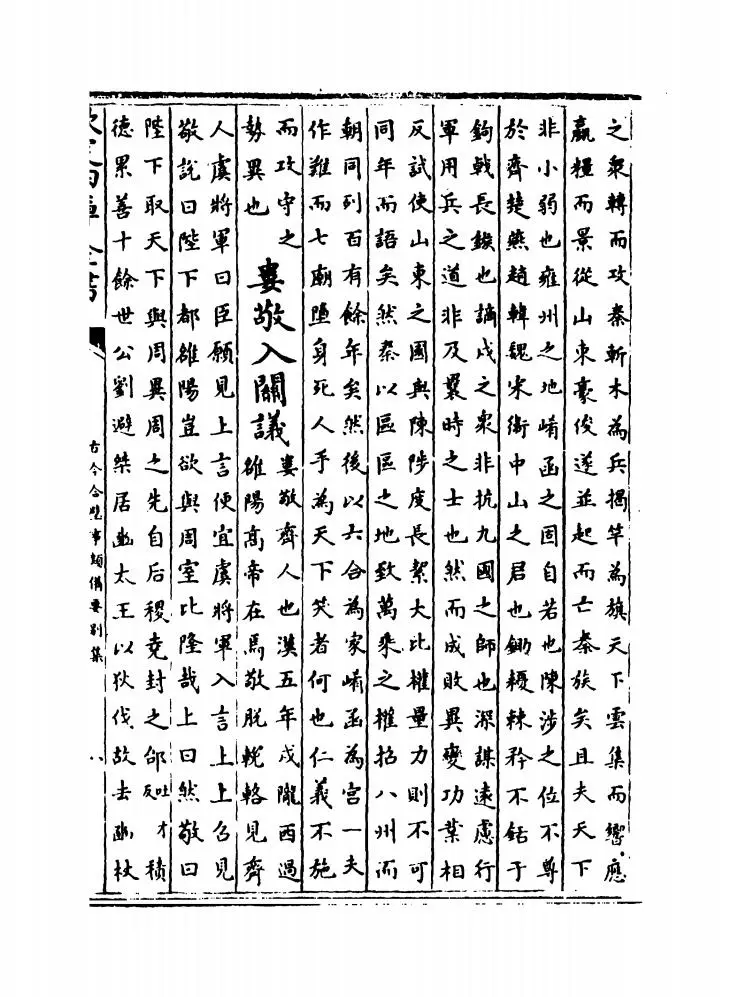 之衆轉而攻秦斬木為兵揭竿為旗天下雲集而響應
贏糧而景從山東豪俊遂並起而亡秦族矣且夫天下
非小弱也雍州之地崤函之固自若也陳涉之位不尊
於齊楚燕趙韓魏宋衛中山之君也鋤耰棘矜不銛于
鉤戟長鎩也謫戍之衆非抗九國之師也深謀遠慮行
軍用兵之道非及曩時之士也然而成敗異變功業相
反試使山東之國與陳陟度長絜大比權量力則不可
同年而語矣然秦以區區之地致萬乘之權招八州而
朝同列百有餘年矣然後以六合為家崤函為宮一夫
作難而七廟墮身死人手為天下笑者何也仁義不施
而攻守之
勢異也
婁敬入關議
婁敬齊人也漢五年戍隴西過
雒陽高帝在焉敬脫輓輅見齊
人虞將軍曰臣願見上言便宜虞將軍入言上上召見
敬說曰陛下都雒陽豈欲與周室比隆哉上曰然敬曰
陛下取天下與周異周之先自后稷堯封之邰吐才反積
德累善十餘世公劉避桀居豳太王以狄伐故去豳杖
欽定四庫全書
古今合璧事類備要別集
八